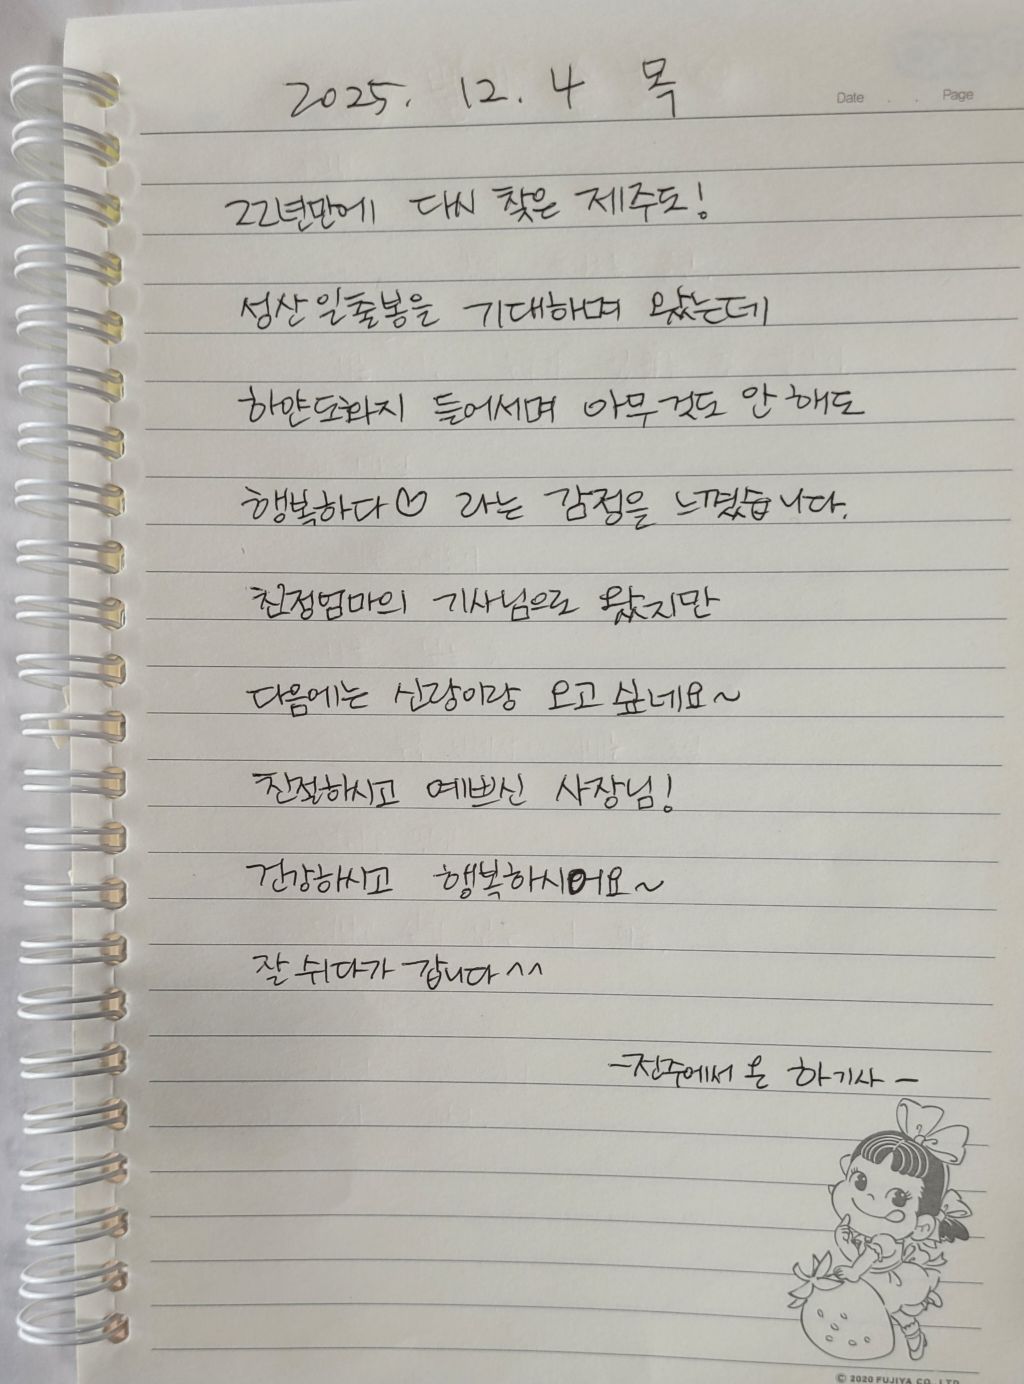 2025. 12. 4 목
Date . . Page
22년만에 다시 찾은 제주도!
성산일출봉을 기대하며 왔는데
하얀도화지 들어서며 아무것도 안해도
행복하다♡ 라는 감정을 느꼈습니다.
친정엄마의 기사님으로 왔지만
다음에는 신랑이랑 오고싶네요~
친절하시고 예쁘신 사장님!
건강하시고 행복하시어요~
잘 쉬다가 갑니다^^
-전주에서 온 하기사-
© 2020 FUJIYA CO., LTD.